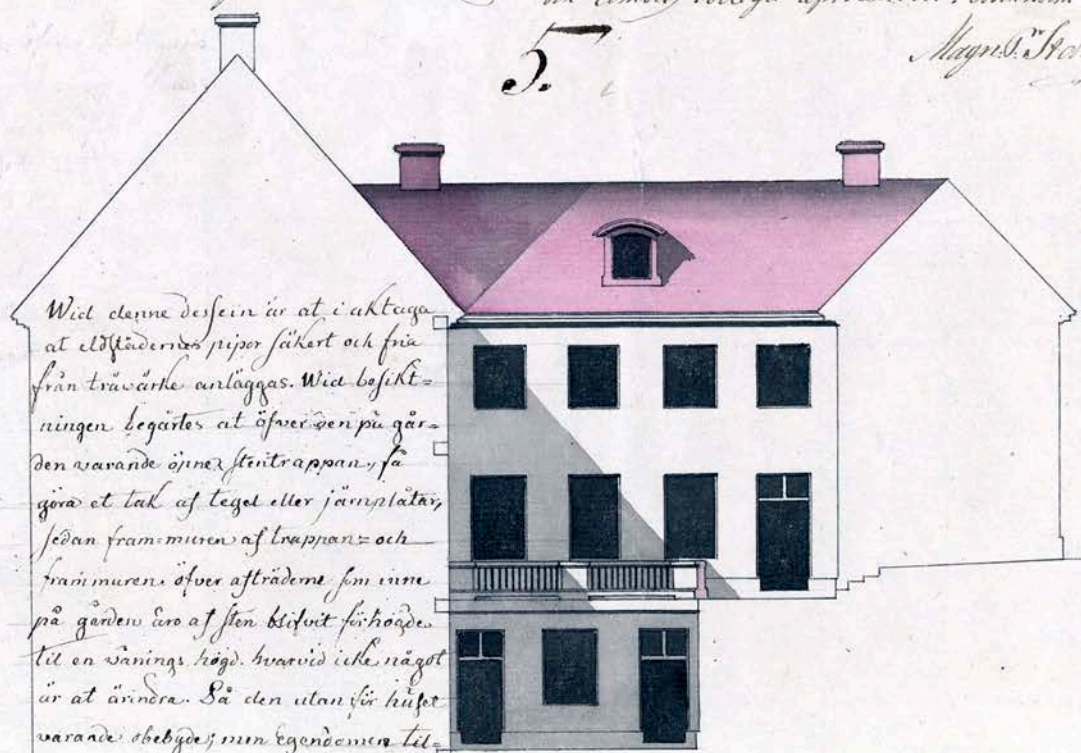 5.
Magn. P.
Wid denne dessein är at i akttaga
at eldstädernes pipor säkert och fria
från träwärke anläggas. Wid besikt=
ningen begärtes at öfver den på går=
den varande öpne stentrappan, få
göra et tak af tegel eller järnplåtar,
sedan fram=muren af trappan= och
frammuren öfver afträderne som inne
på gården äro af sten blifvit förhögde
til en vånings högd. hvarvid icke något
är at ärindra. Då den utan för huset
varande obebygde; men Egendomen til=